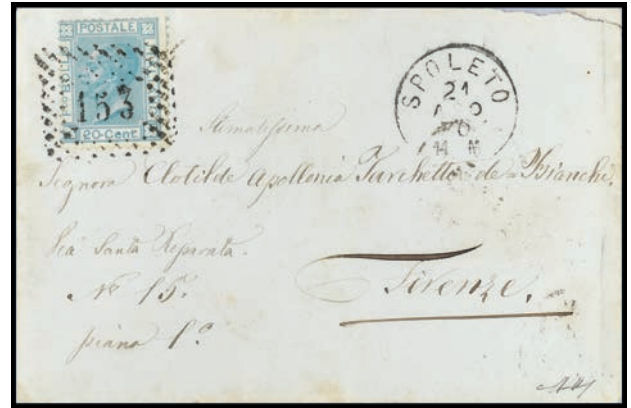 POSTALE
153
20 Cent
SPOLETO
21
Stimatissima
Signora Clotilde Apollonia Turchetto de Bianchi,
Via Santa Reparata.
N° 15.
piano 1.°
Firenze.